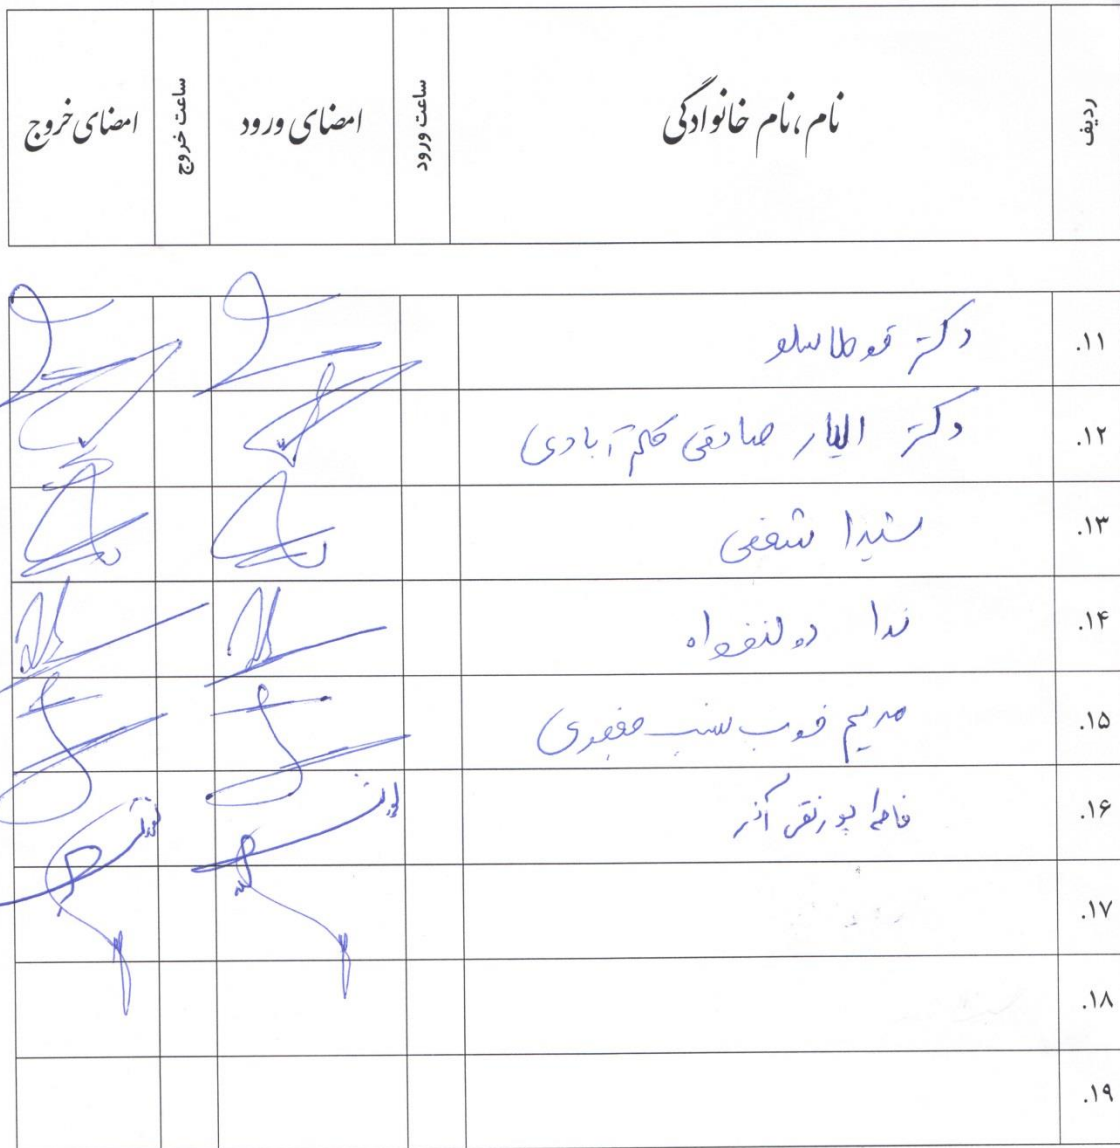 ردیف نام، نام خانوادگی ساعت ورود امضای ورود ساعت خروج امضای خروج
۱۱. دکتر
۱۲. دکتر ایلار صادقی کلم آبادی
۱۳. شیدا شفقی
۱۴. ندا دولتخواه
۱۵. مریم خوب نسب جعفری
۱۶. فاطمه پورنقی آذر
۱۷.
۱۸.
۱۹.